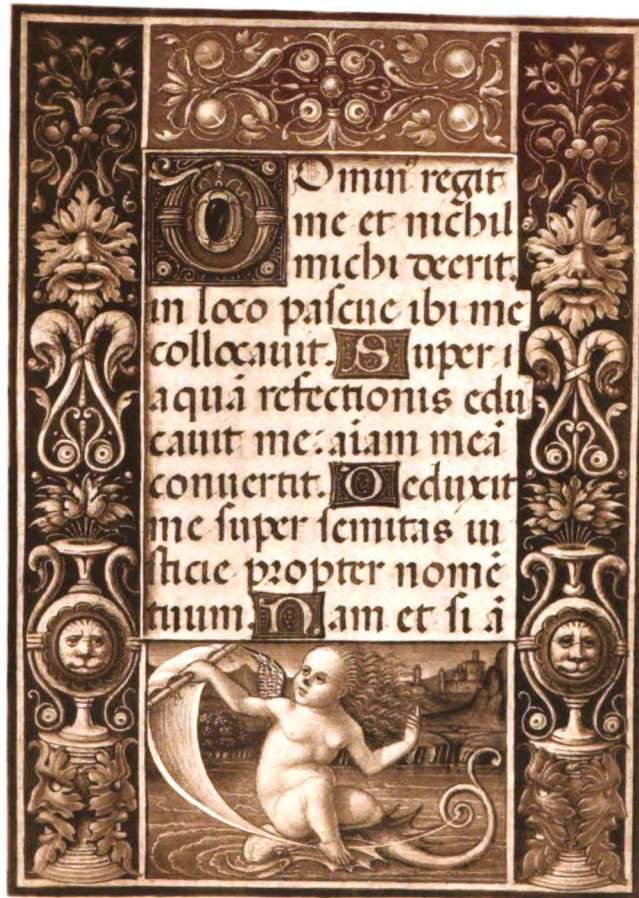 Dominꝰ regit
me et nichil
michi deerit.
in loco pascue ibi me
collocauit. Super i
aquā refectionis edu
cauit me: aīam meā
conuertit. Deduxit
me super semitas iu
sticie propter nomē
tuum. Nam et si ā